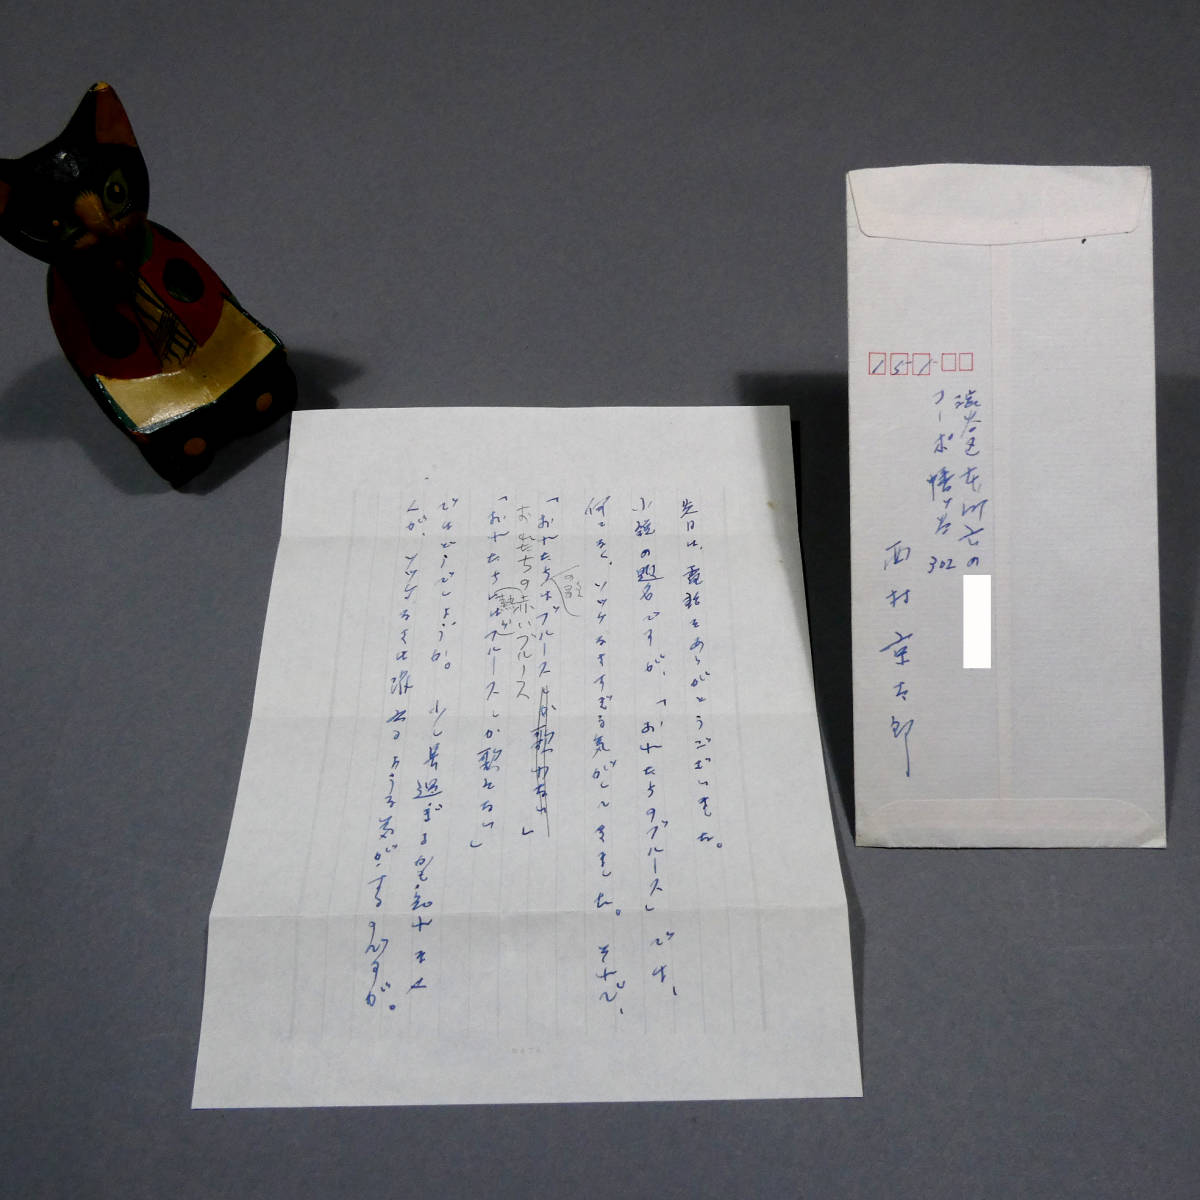 先日は、電話をありがとうございました。
小説の題名ですが、「おれたちのブルース」では、
何となく、ソッケなさすぎる気がしてきました。それで、
「おれたちはブルースしか歌わない」
おれたちの赤いブルース
「おれたちにはブルースしか歌えない」
ではどうでしょうか。少し長過ぎるかも知れませ
んが、ソッケなさは救えるような気がするんですが。
151
渋谷区本町六の
コーポ幡ヶ谷302
西村京太郎